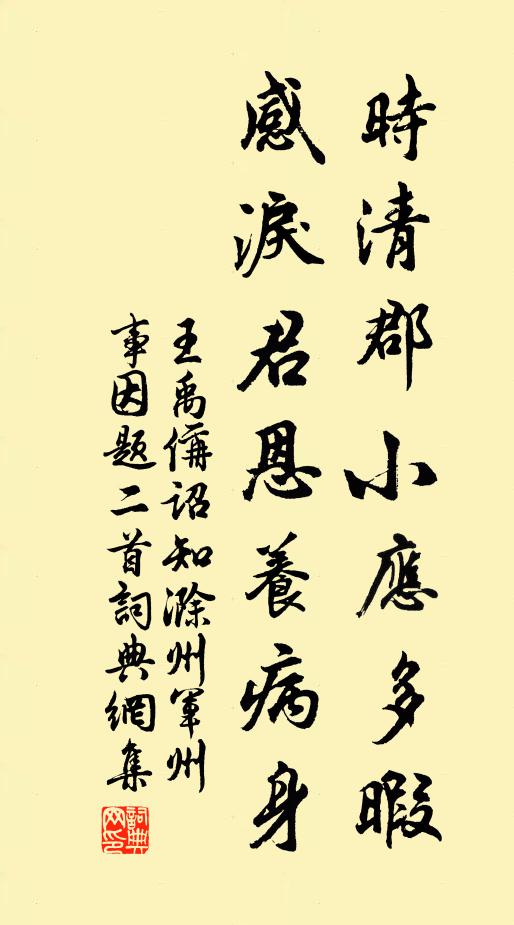 時清郡小應多暇
感淚君恩養病身
王禹偁詔知滁州軍州
事因題二首詞典網集
詞典網印